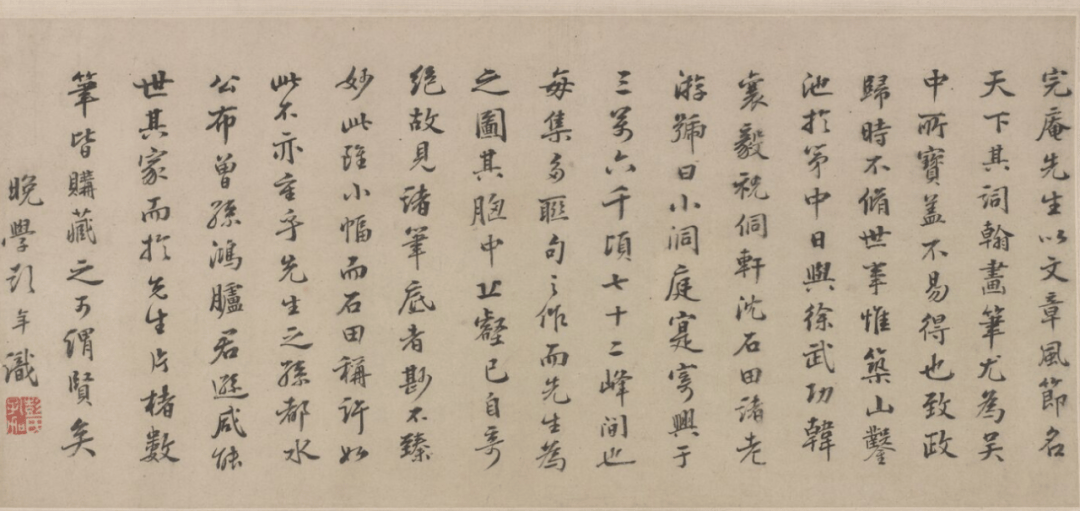 完庵先生以文章風節名
天下其詞翰畫筆尤為吴
中所寶盖不易得也致政
歸時不脩世事惟築山鑿
池扵第中日與徐武功韓
襄毅祝侗軒沈石田諸老
游號曰小洞庭寔寄興于
三萬六千頃七十二峰間也
每集多聯句之作而先生為
之圖其胸中丘壑已自奇
絕故見諸筆底者尠不臻
妙此雖小幅而石田稱許如
此不亦重乎先生之孫都水
公布曽孫鴻臚君遜咸能
世其家而扵先生片楮數
筆皆購藏之可謂賢矣
晚學彭年識